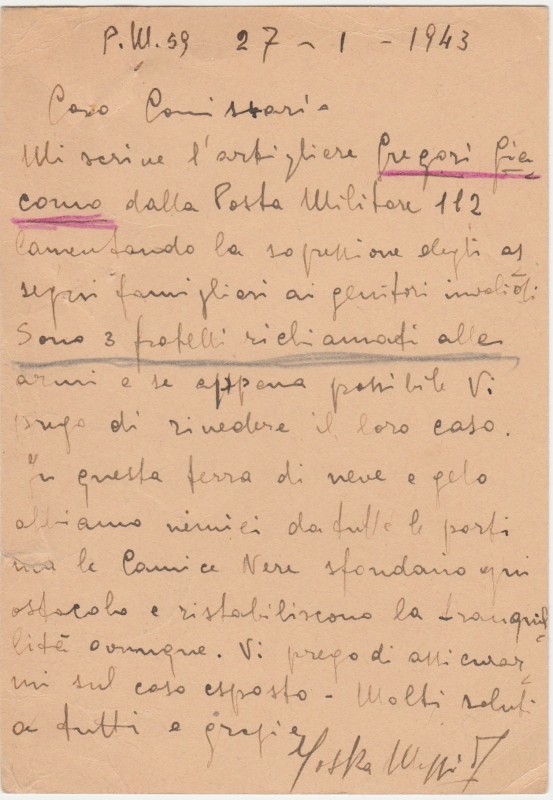 P.M. 59 27 - 1 - 1943
Caro Comissario
Mi scrive l'artigliere Gregori Gia
como dalla Posta Militare 112
lamentando la sopressione degli as
segni famigliari ai genitori invalidi.
Sono 3 fratelli richiamati alle
armi e se appena possibile Vi
prego di rivedere il loro caso.
In questa terra di neve e gelo
abbiamo nemici da tutte le parti
ma le Camice Nere sfondano ogni
ostacolo e ristabiliscono la tranquil
lità ovunque. Vi prego di assicurar
mi sul caso esposto - Molti saluti
a tutti e grazie